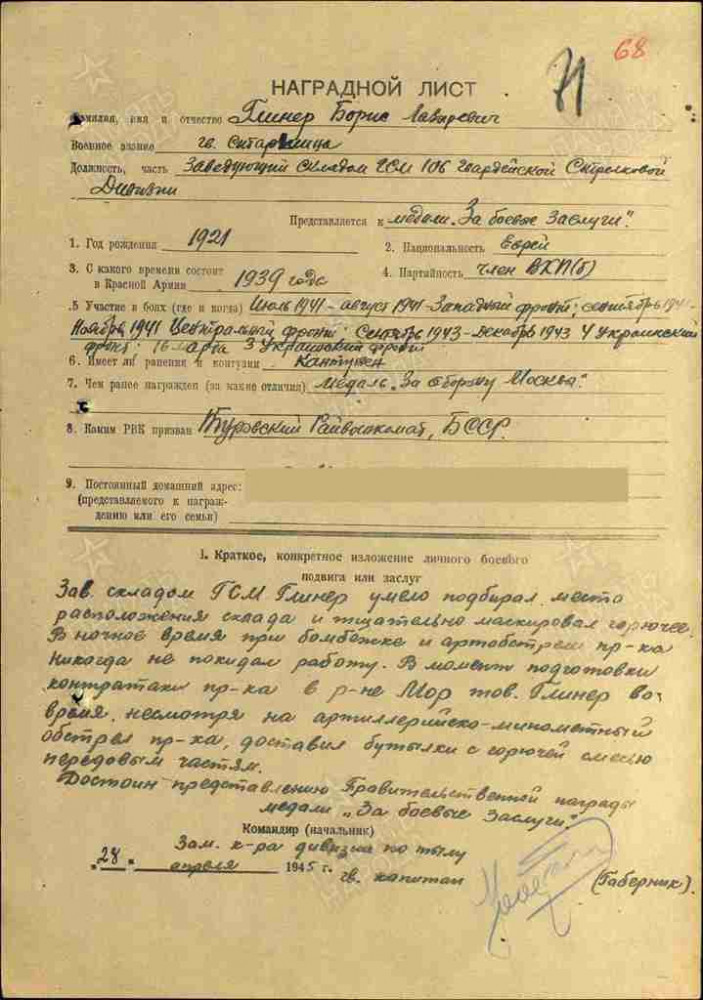 68
71
НАГРАДНОЙ ЛИСТ
Фамилия, имя и отчество Глинер Борис Лазаревич
Военное звание гв. Старшина
Должность, часть Заведующий складом ГСМ 106 Гвардейской Стрелковой
Дивизии
Представляется к медали „За боевые Заслуги".
1. Год рождения 1921
2. Национальность Еврей
3. С какого времени состоит
в Красной Армии 1939 года
4. Партийность член ВКП(б)
5 Участие в боях (где и когда) Июль 1941 - август 1941 - Западный фронт; сентябрь 1941 -
Ноябрь 1941 Центральный фронт; Сентябрь 1943 - декабрь 1943 4 Украинский
фронт; 16 марта 3 Украинский фронт
6. Имеет ли ранения и контузии Контужен
7. Чем ранее награжден (за какие отличия) медаль „За оборону Москва".
8. Каким РВК призван Туровский Райвоенкомат, БССР.
9. Постоянный домашний адрес:
(представляемого к награж-
дению или его семьи)
I. Краткое, конкретное изложение личного боевого
подвига или заслуг
Зав. складом ГСМ Глинер умело подбирал места
расположения склада и тщательно маскировал горючее.
В ночное время при бомбежке и артобстреле пр-ка
никогда не покидал работу. В момент подготовки
контратаки пр-ка в р-не Мор тов. Глинер во-
время, несмотря на артиллерийско-минометный
обстрел пр-ка, доставил бутылки с горючей смесью
передовым частям.
Достоин представлению Правительственной награды
медали „За боевые Заслуги".
Командир (начальник)
Зам. к-ра дивизии по тылу
„28" апреля 1945 г.
гв. капитан
(Габерник).